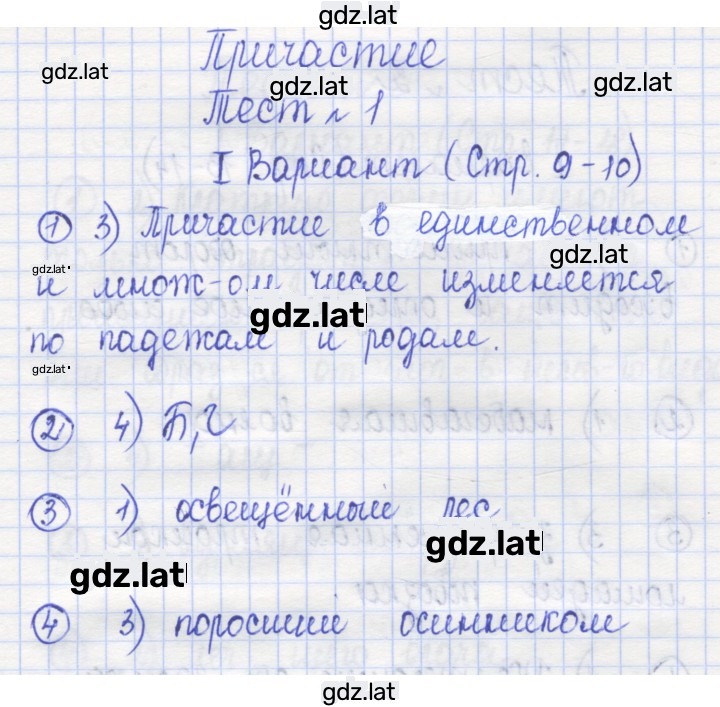 gdz.lat
Причастие
gdz.lat gdz.lat gdz.lat
Тест № 1
I Вариант (Стр. 9-10)
1 3) Причастие в единственном
gdz.lat
gdz.lat
и множ-ом числе изменяется
gdz.lat
по падежам и родам.
gdz.lat
2 4) Б, Г
3 1) освещённый лес
gdz.lat
gdz.lat
4 3) поросший осинником
gdz.lat